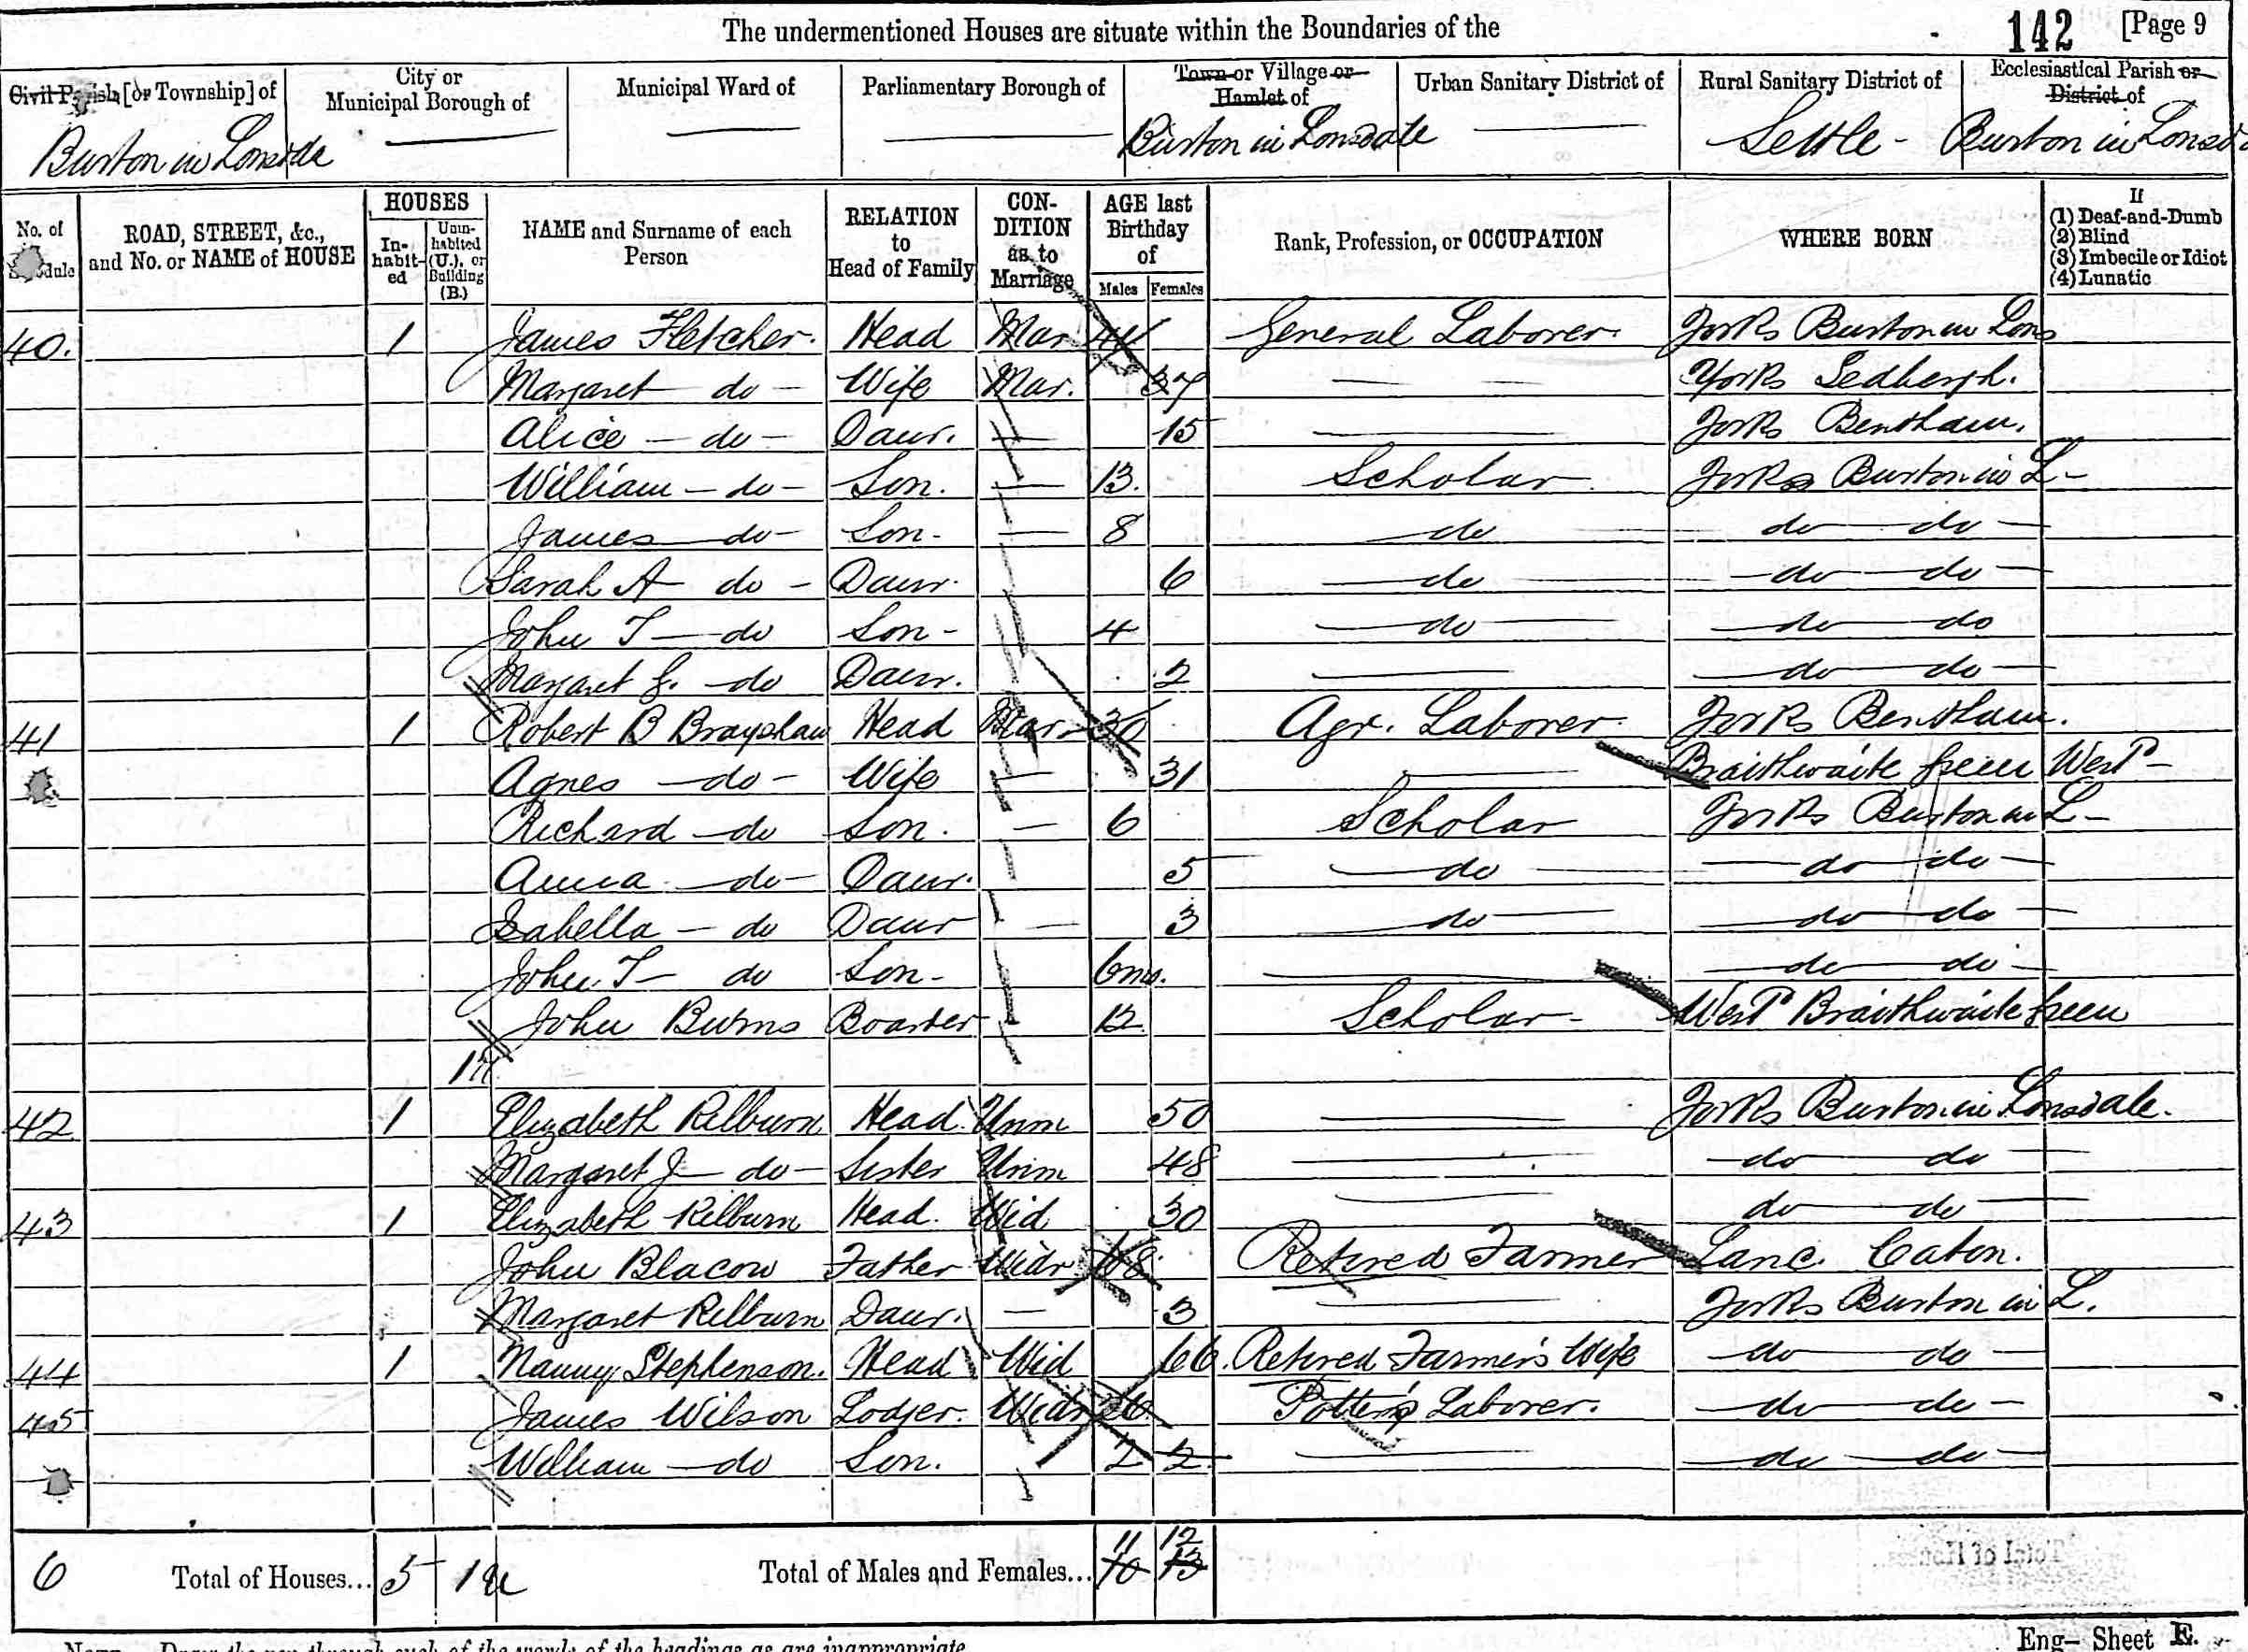 The undermentioned Houses are situate within the Boundaries of the
142 [Page 9
Civil Parish [or Township] of
City or Municipal Borough of
Municipal Ward of
Parliamentary Borough of
Town or Village or Hamlet of
Urban Sanitary District of
Rural Sanitary District of
Ecclesiastical Parish or District of
Burton in Lonsdale
Burton in Lonsdale
Settle -
Burton in Lonsd
No. of Schedule
ROAD, STREET, &c., and No. or NAME of HOUSE
HOUSES
Inhabited
Uninhabited (U.), or Building (B.)
NAME and Surname of each Person
RELATION to Head of Family
CONDITION as to Marriage
AGE last Birthday of
Males Females
Rank, Profession, or OCCUPATION
WHERE BORN
If
(1) Deaf-and-Dumb
(2) Blind
(3) Imbecile or Idiot
(4) Lunatic
40. 1 James Fletcher. Head Mar 41 General Laborer. Yorks Burton in Lons
Margaret do - Wife Mar. 37 Yorks Sedbergh.
Alice - do - Daur. 15 Yorks Bentham.
William - do - Son. 13. Scholar Yorks Burton in L -
James do - Son - 8 do do do
Sarah A do - Daur. 6 do do do
John T - do Son - 4 do do do
Margaret J. - do Daur. 2 do do
41 1 Robert B Brayshaw Head Mar 30 Agr. Laborer. Yorks Bentham.
Agnes - do - Wife 31 Braithwaite Green West -
Richard - do Son. 6 Scholar Yorks Burton in L -
Anna - do - Daur. 5 do do do
Isabella - do Daur 3 do do do
John T - do Son - 6mo. do do
John Burns Boarder 12 Scholar - West Braithwaite Green
1U
42 1 Elizabeth Kilburn Head. Unm 50 Yorks Burton in Lonsdale.
Margaret J - do - Sister Unm 48 do do
43 1 Elizabeth Kilburn Head. Wid 30 do do
John Blacow Father Widr 68. Retired Farmer Lanc. Caton.
Margaret Kilburn Daur. 3 Yorks Burton in L.
44 1 Nanny Stephenson. Head Wid 66. Retired Farmer's Wife do do
45 James Wilson Lodger. Widr Potter's Laborer. do do -
William - do Son. 2 2 do do
6 Total of Houses... 5 1U Total of Males and Females... 11 10 12 13
Eng— Sheet E.